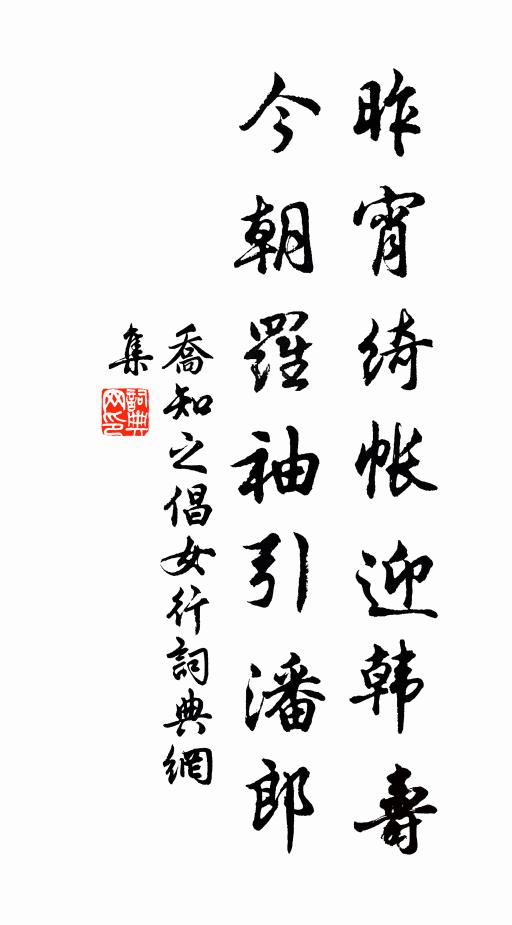 昨宵綺帳迎韩壽
今朝羅袖引潘郎
喬知之倡女行詞典網
集
詞典
网印